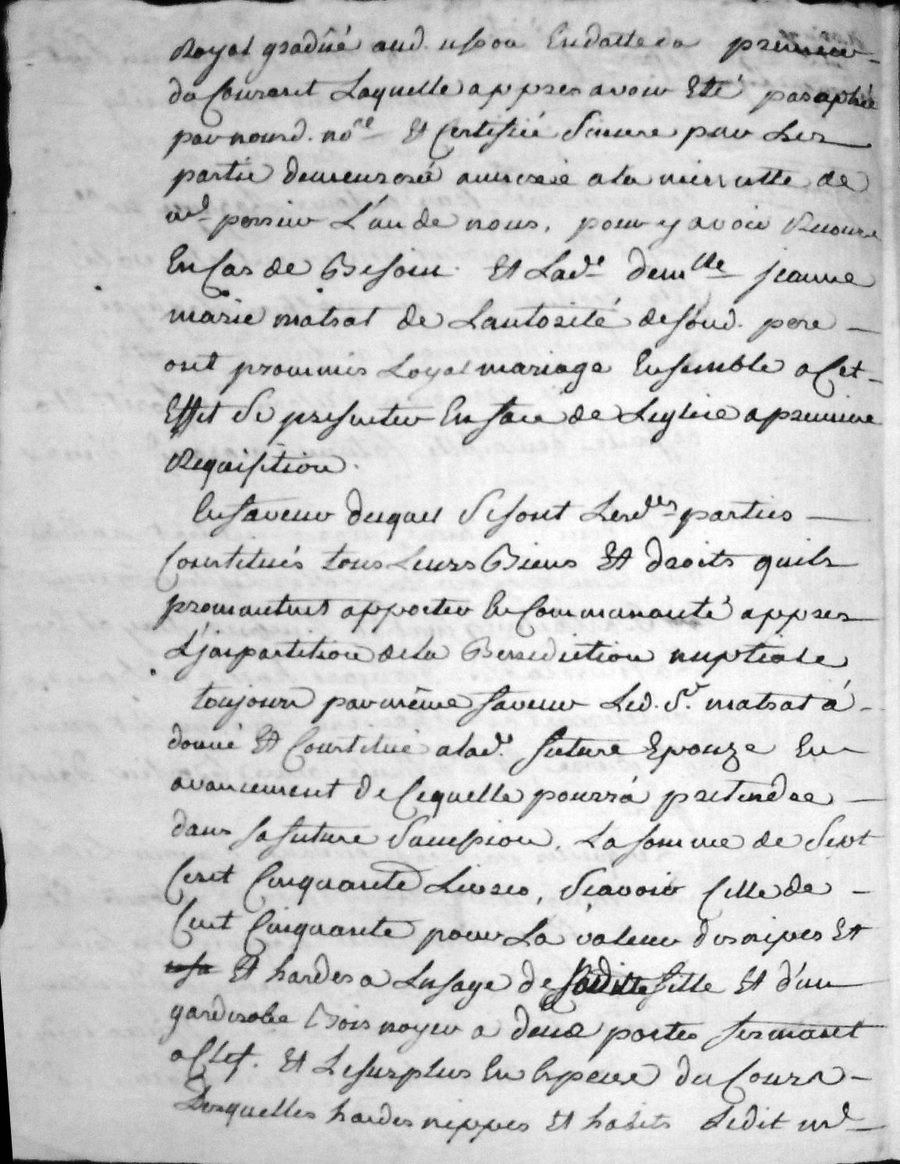 Royal gradué aud. Endatte du premier
du Courant Laquelle appres avoir Eté paraphée
par nousd. nore Et Certifiée Sincere par Les
partie demeurera annexée ala minutte de
pour y avoir Recours
En Cas de Besoin. Et Lade demlle jeanne
marie matrat de Lautorité desond. pere
ont prommis Loyal mariage Ensemble a Cet
Effet Se presenter En face de Leglise a premiere
Requisition.
En faveur duquel Se sont Lesdes parties
Constitués tous Leurs Biens Et droits quils
promautent apporter En Communauté appres
L'jmpartition dela Benediction nuptiale
toujour par même faveur Led. Sr matrat à
donné Et Constitué a lade future Epouze En
avancement de Cequelle pourrà pretendre
dans sa future Sucession, La somme de Sept
Cent Cinquante Livres, Sçavoir Celle de
Cent Cinquante pour La valeur des nipes Et
Et hardes a Lusage de saditte fille Et d'un
garderobe Bois noyer a deux portes fermant
a Clef. Et Lesurplus En Espece du Cours
Lesquelles hardes nippes Et habits Ledit